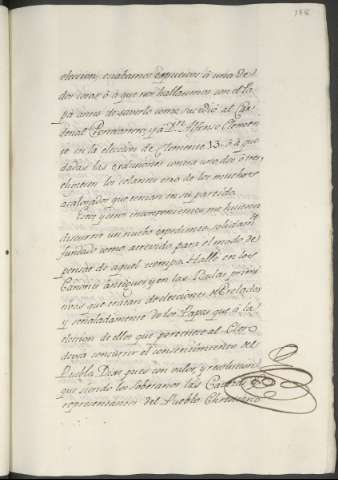 eleccion, estabamos expuestos à una de
dos cosas ó à que nos hallasemos con el Pa
pa antes de saberlo como sucedió al Car
denal Portocarrero, y à Dn. Alfonso Clemen
te en la elección de Clemente 13. ó à que
dadas las exclusiones contra uno, dos ò tres,
eligiesen los zelantes uno de los muchos
acalogados que tenian en su partido.
Este y otros inconvenientes me hicieron
discurrir un nuevo expediente, solidam.te
fundado como acertado para el modo de
pensar de aquel tiempo. Hallè en los
Canones antiguos y en las Reglas primi
tivas que tratan de elecciones de Prelados
y señaladamente de los Papas que à la
eleccion de ellos que pertenece al Clero
devia concurrir el consentimiento del
Pueblo. Dixe pues con valor, y resolucion
que siendo los Soberanos las Cabezas y
representantes del Pueblo Christiano